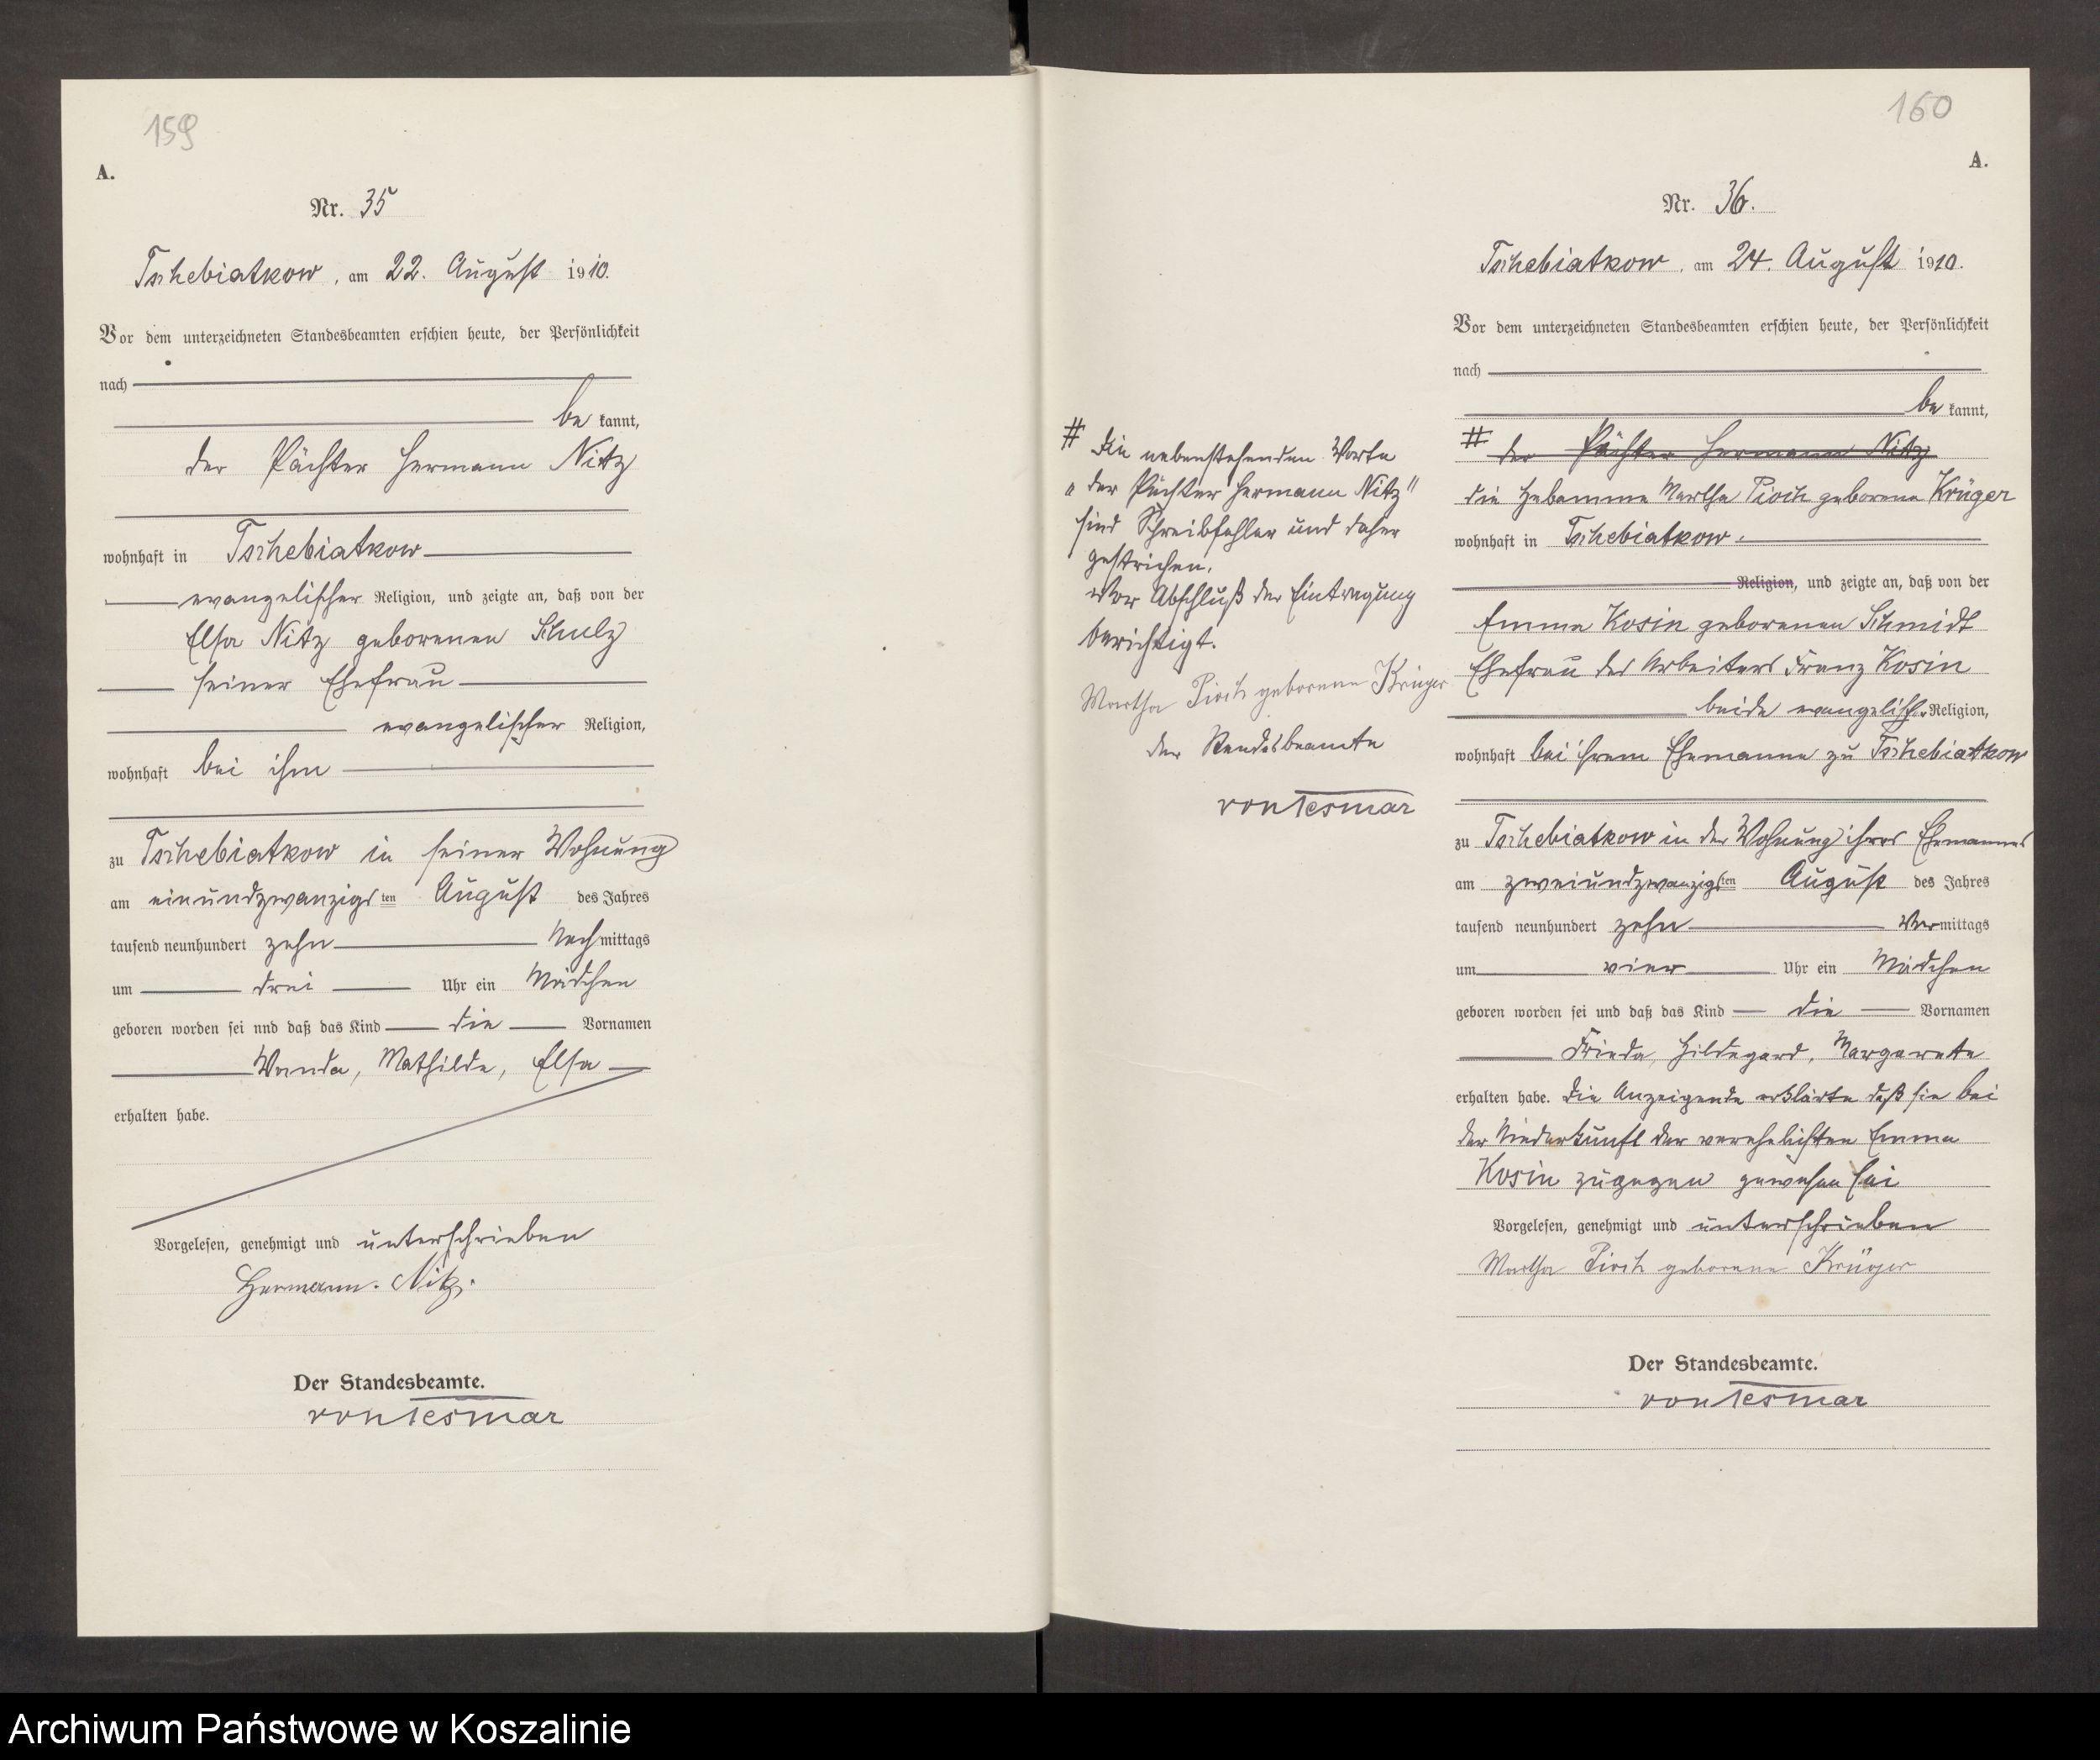 159
A.
Nr. 35
Tschebiatkow, am 22. August 1910.
Vor dem unterzeichneten Standesbeamten erschien heute, der Persönlichkeit
nach
be kannt,
der Pächter Hermann Nitz
wohnhaft in Tschebiatkow
evangelischer Religion, und zeigte an, daß von der
Elsa Nitz geborenen Schulz
seiner Ehefrau
evangelischer Religion,
wohnhaft bei ihm
zu Tschebiatkow in seiner Wohnung
am einundzwanzigs ten August des Jahres
tausend neunhundert zehn Nachmittags
um drei Uhr ein Mädchen
geboren worden sei nnd daß das Kind die Vornamen
Wanda, Mathilde, Elsa
erhalten habe.
Vorgelesen, genehmigt und unterschrieben
Hermann. Nitz.
Der Standesbeamte.
von Tesmar
160
A.
Nr. 36.
Tschebiatkow, am 24. August 1910.
Vor dem unterzeichneten Standesbeamten erschien heute, der Persönlichkeit
nach
be kannt,
# der Pächter Hermann Nitz
die Hebamme Martha Pioch geborene Krüger
wohnhaft in Tschebiatkow.
Religion, und zeigte an, daß von der
Emma Kosin geborenen Schmidt
Ehefrau des Arbeiters Franz Kosin
beide evangelisch. Religion,
wohnhaft bei ihrem Ehemanne zu Tschebiatkow
zu Tschebiatkow in der Wohnung ihres Ehemannes
am zweiundzwanzigsten August des Jahres
tausend neunhundert zehn Vormittags
um vier Uhr ein Mädchen
geboren worden sei und daß das Kind die Vornamen
Frieda, Hildegard, Margarete
erhalten habe. Die Anzeigende erklärte daß sie bei
der Niederkunft der verehelichten Emma
Kosin zugegen gewesen sei
Vorgelesen, genehmigt und unterschrieben
Martha Pioch geborene Krüger
Der Standesbeamte.
von Tesmar
# Die nebenstehenden Worte
„der Pächter Hermann Nitz"
sind Schreibfehler und daher
gestrichen.
Vor Abschluß der Eintragung
berichtigt.
Martha Pioch geborene Krüger
der Standesbeamte
von Tesmar
Archiwum Państwowe w Koszalinie